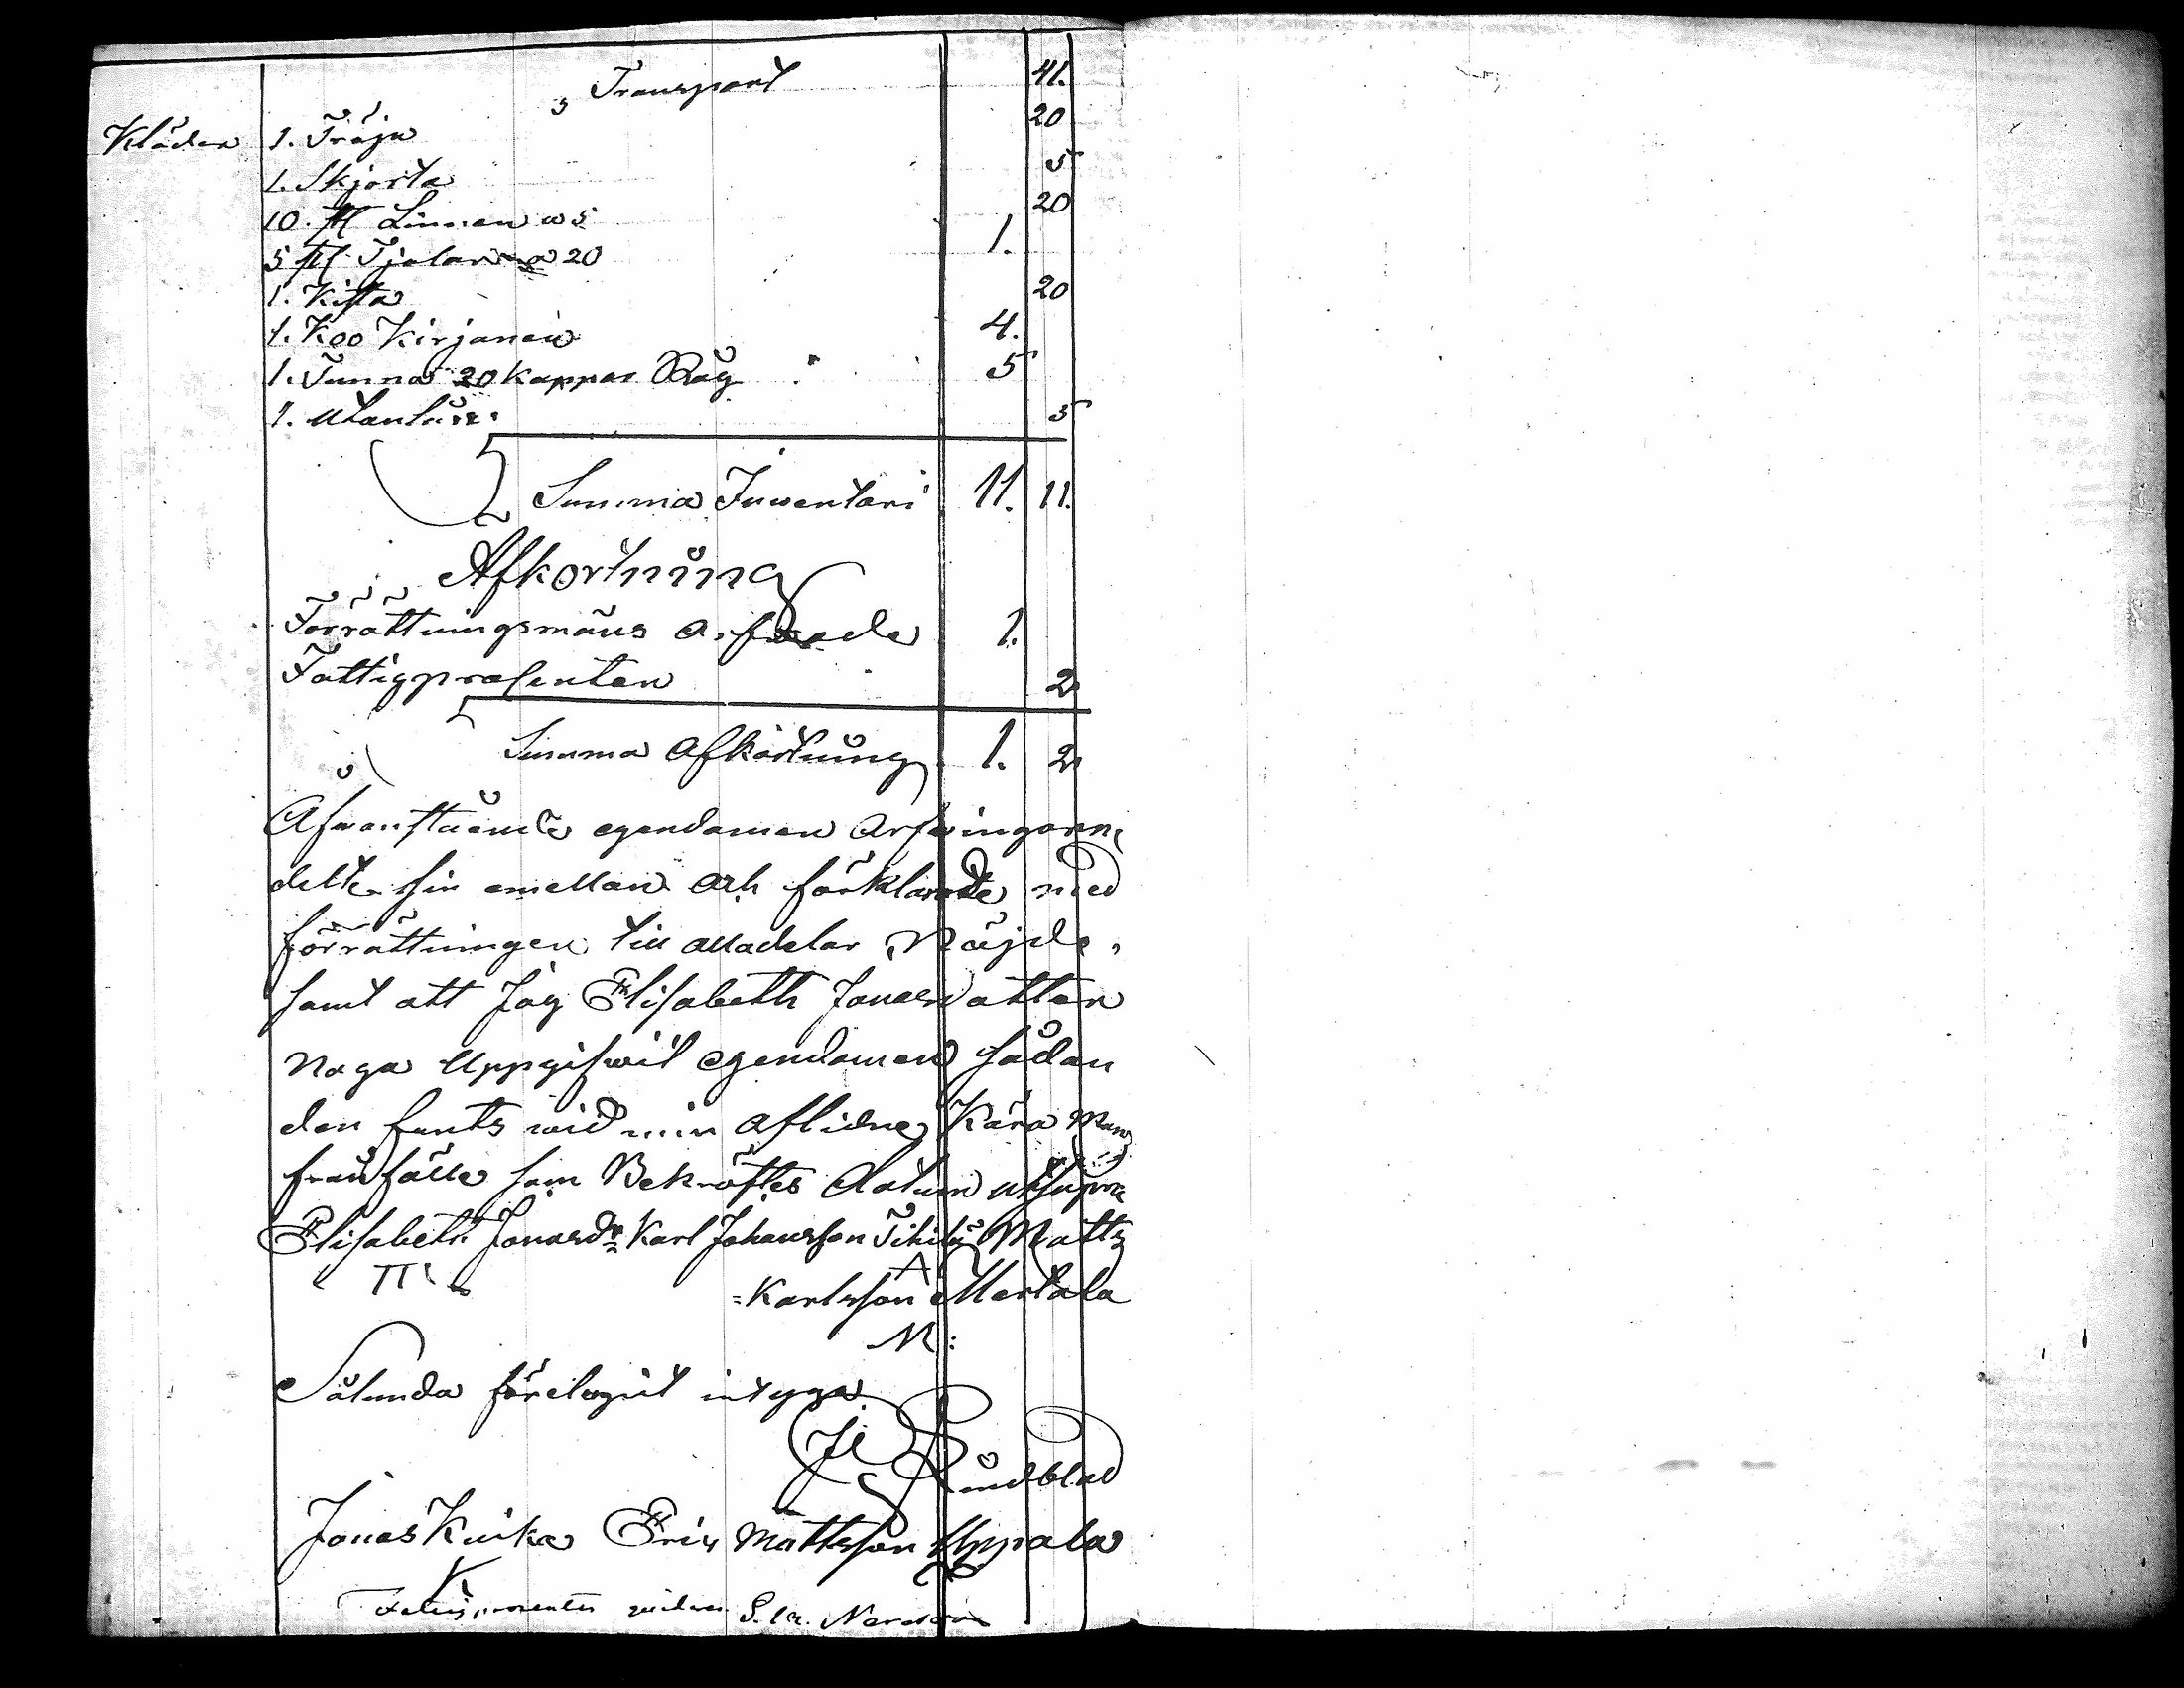 Transport 41.
Kläder 1. Tröja 20
1. Skjorta 5
10. ℔ Linnen a 5 20
5 ℔ Tjolar a 20 1.
1. Kista 20
1. Koo Kirjanen 4.
1. Tunna 20 kappar Råg 5
1. 5
Summa Inwentari 11. 11.
Afkortning
Förrättningsmäns arfwode 1.
Fattigprosenten 2
Summa Afkortning 1. 2
Afwanstående egendomen Arfwingarne
delte sin emellan och förklarade med
förrättningen till alladelar Nöjde,
samt att Jag Elisabeth Jonasdotter
Noga Uppgifwit egendomen sådan
den fants wid min Aflidne Kära Mans
frånfälle som Bekräftes Datum utsupra
Elisabeth Jonasdr Karl Johansson Matts
Karlsson Mertala
M:
Sålunda förelupit intyga
Lindblad
Jonas Kuika Eric Mattsson Uppala